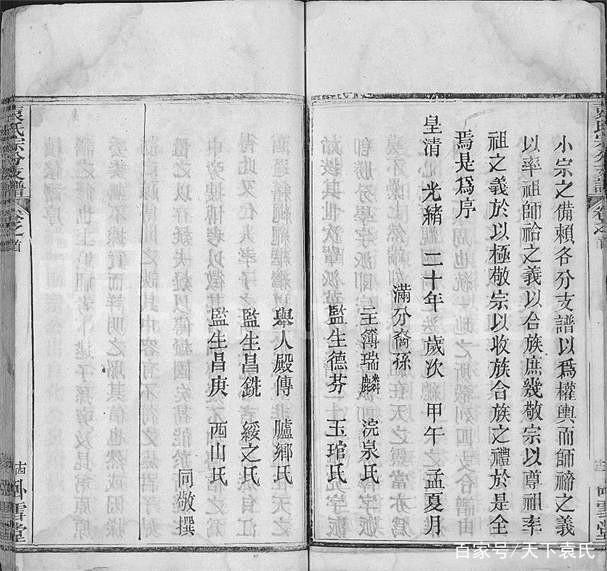 小宗之備賴各分支譜以爲權輿而師禘之義
以率祖師祫之義以合族庶幾敬宗以尊祖率
祖之義於以極敬宗以收族合族之禮於是全
焉是爲序
皇清 光緒 二十年 歲次 甲午 孟夏月
滿分裔孫
主簿瑞麟 浣泉氏
監生德芬 玉琯氏
舉人殿傳 臚鄉氏
監生昌銑 綬之氏
監生昌庚 西山氏
同敬撰
袁氏宗分支譜 卷之首
卧雪堂
百家号/天下袁氏